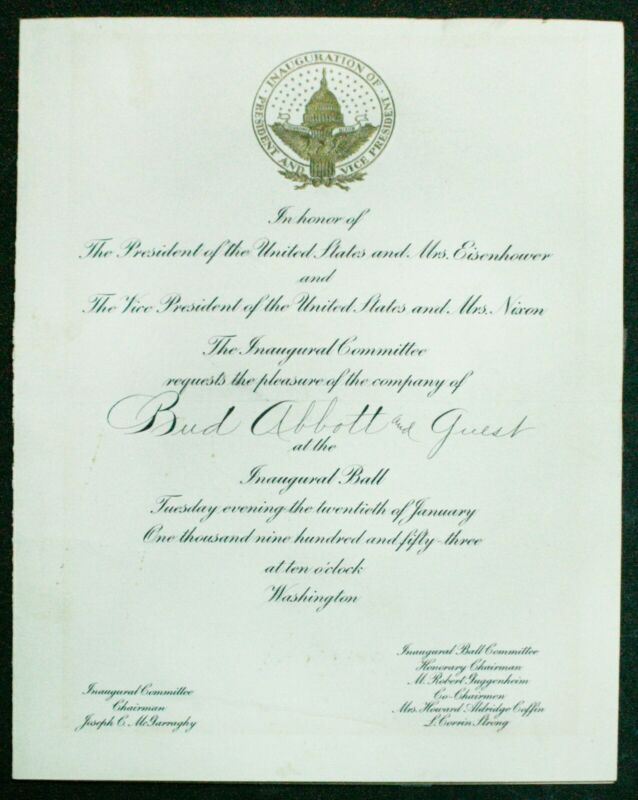 INAUGURATION OF
PRESIDENT AND VICE PRESIDENT
In honor of
The President of the United States and Mrs. Eisenhower
and
The Vice President of the United States and Mrs. Nixon
The Inaugural Committee
requests the pleasure of the company of
Bud Abbott and Guest
at the
Inaugural Ball
Tuesday evening the twentieth of January
One thousand nine hundred and fifty-three
at ten o'clock
Washington
Inaugural Committee
Chairman
Joseph C. McGarraghy
Inaugural Ball Committee
Honorary Chairman
M. Robert Guggenheim
Co-Chairmen
Mrs. Howard Aldridge Coffin
L. Corrin Strong